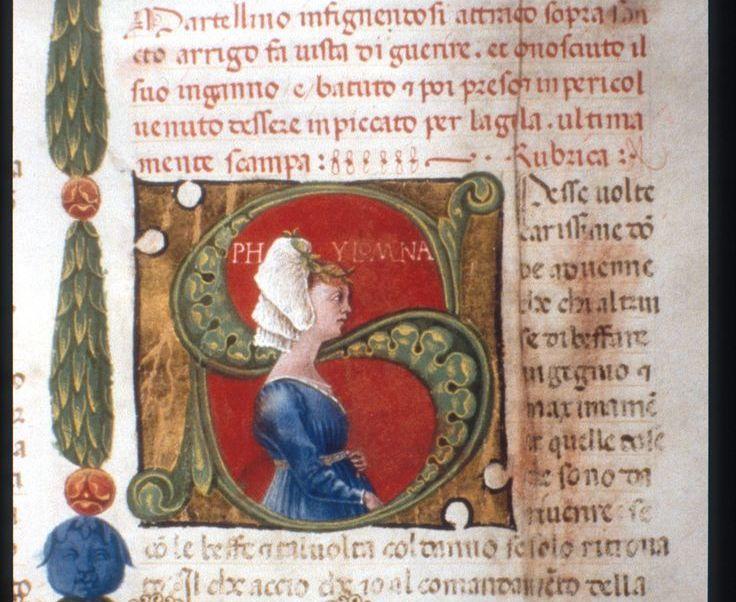 Martellino infignendosi attracto sopra san
cto arrigo fa vista di guerire. et conosciuto il
suo inganno e/ batuto & poi preso & in pericol
venuto dessere inpiccato per la gola. ultima
mente scampa: Rubrica:
PHYLOMNA
pesse volte
carissime do
ne aduenne
che chi altrui
se di beffare
ingegnio &
maximame
te quelle cose
che sono da
riuerire: se
co le beffe & tal volta col danno se solo ritroua
to. Il che accio che io al comandameto della